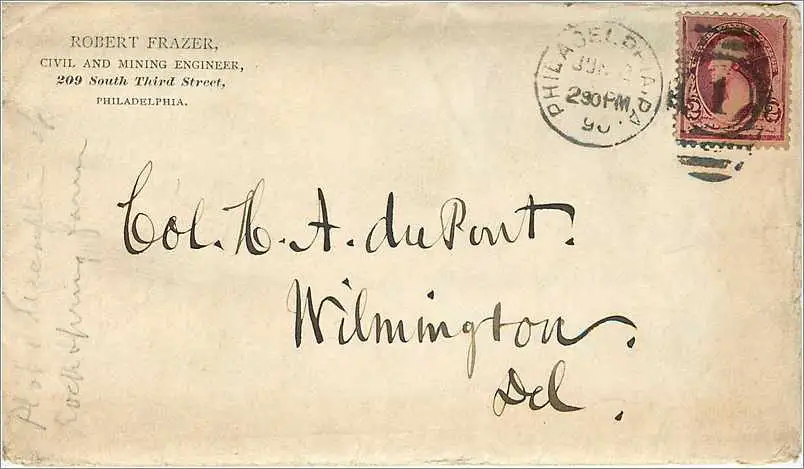 ROBERT FRAZER,
CIVIL AND MINING ENGINEER,
209 South Third Street,
PHILADELPHIA.
PHILADELPHIA, PA.
JUN
230 PM
90
2 2
1
Col. H. A. du Pont.
Wilmington.
Del.
Plot &
Rock Spring Farm